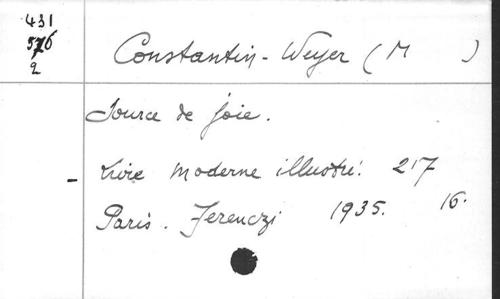 431
576
2
Constantin-Weyer (M )
Source de joie.
- Livre moderne illustré. 217
Paris. Ferenczi 1935. 16.